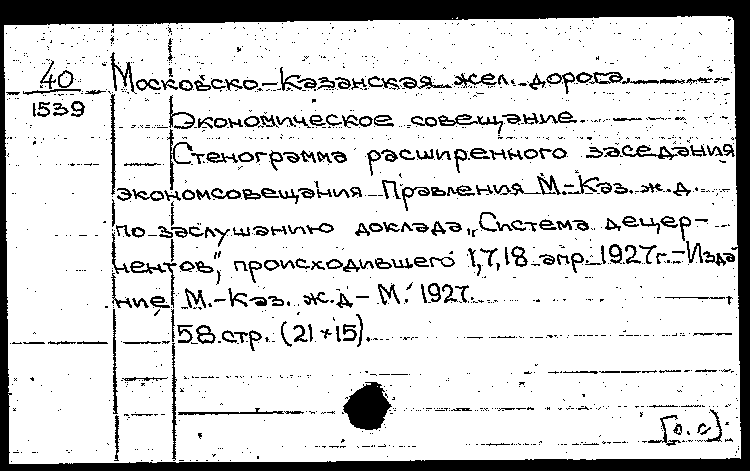 40
1539
Московско-Казанская жел. дорога.
Экономическое совещание.
Стенограмма расширенного заседания
экономсовещания Правления М.-Каз. ж.д.
по заслушанию доклада „Система децер-
нентов", происходившего 1,7,18 апр. 1927г.-Изда
ние М.-Каз. ж.д-М. 1927.
58 стр. (21×15).
[о.с]